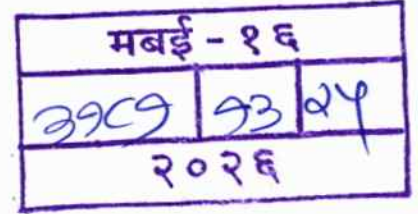 मबई - १६
३१८१ १३ २५
२०२६